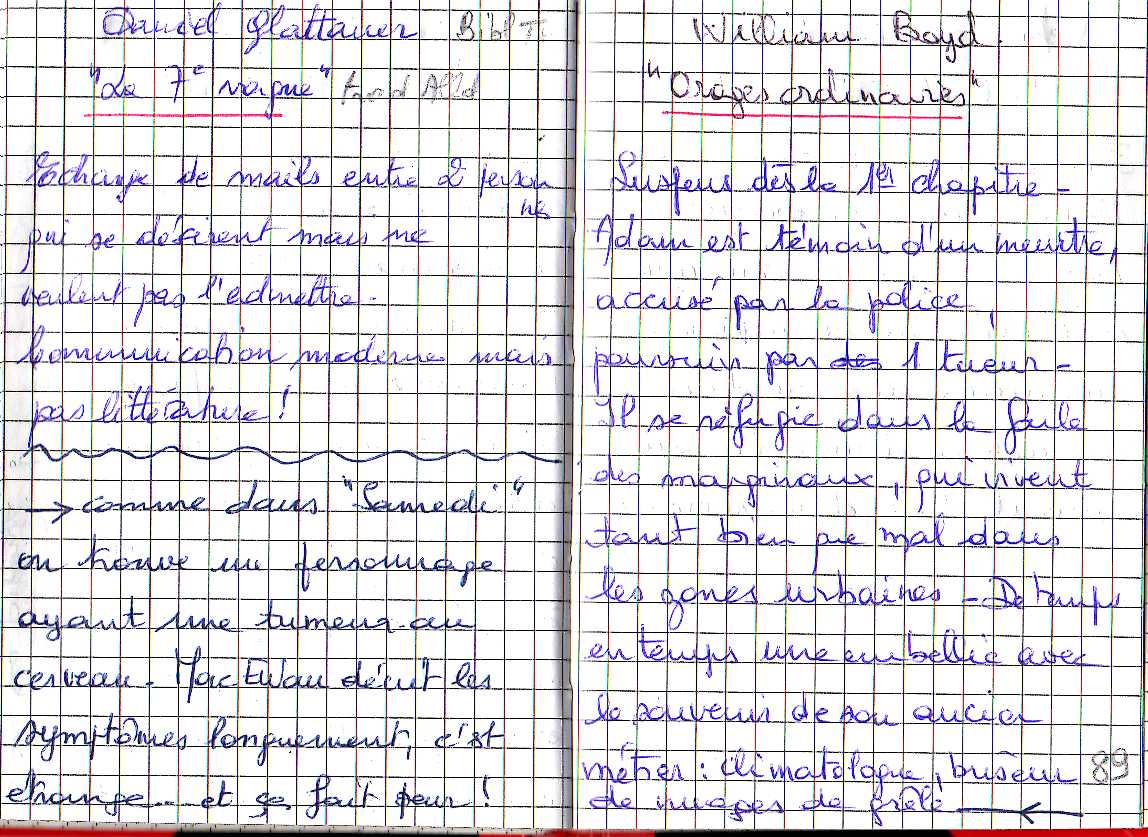 Daniel Glattauer Bibl Ti
"La 7e vague" fond Alld
Echange de mails entre 2 person
nes
qui se désirent mais ne
veulent pas l'admettre.
Communication moderne mais
pas littérature !
→ comme dans "Samedi"
on trouve un personnage
ayant une tumeur au
cerveau. MacEwan décrit les
symptômes longuement, c'est
étrange... et ça fait peur !
William Boyd
"Orages ordinaires"
Suspens dès le 1er chapitre -
Adam est témoin d'un meurtre,
accusé par la police,
poursuivi par des 1 tueur -
Il se réfugie dans la foule
des marginaux, qui vivent
tant bien que mal dans
les zones urbaines - De temps
en temps une embellie avec
le souvenir de son ancien
métier : climatologue, buseur 89
de nuages de grêle ←